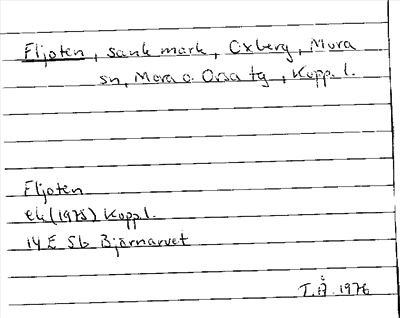 Fljoten, sank mark, Oxberg, Mora
sn, Mora o. Orsa tg, Kopp. l.
Fljoten
ek (1978) Kopp l.
14 E 5b Björnarvet
T.Å. 1976